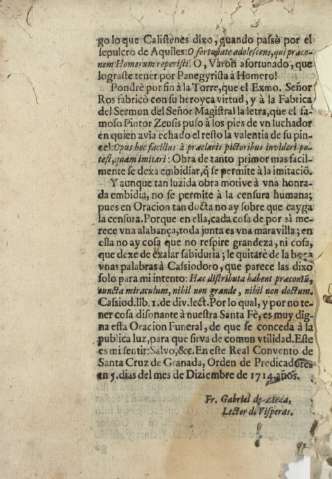 go lo que Calistenes dixo, quando passò por el
sepulcro de Aquiles: O fortunate adolescens, qui præco-
nem Homerum reperisti. O, Varon afortunado, que
lograste tener por Panegyrista à Homero!
Pondrè por fin à la Torre, que el Exmo. Señor
Ros fabricó con su heroyca virtud, y à la Fabrica
del Sermon del Señor Magistral la letra, que el fa-
moso Pintor Zeusis puso à los pies de vn luchador
en quien avia echado el resto la valentia de su pin-
cel: Opus hoc facilius à præclaris pictoribus invideri po-
test, quam imitari: Obra de tanto primor mas facil-
mente se dexa embidiar, q̃ se permite à la imitaciõ.
Y aunque tan luzida obra motive à vna honra-
da embidia, no se permite à la censura humana;
pues en Oracion tan docta no ay sobre que cayga
la censura. Porque en ella, cada cosa de por si me-
rece vna alabança, toda junta es vna maravilla; en
ella no ay cosa que no respire grandeza, ni cosa,
que dexe de exalar sabiduria; le quitarè de la boca
vnas palabras à Casiodoro, que parece las dixo
solo para mi intento: Hac distributa habent præconiũ,
cuncta miraculum, nihil non grande, nihil non doctum.
Casiod. lib. 1. de div. lect. Por lo qual, y por no te-
ner cosa disonante à nuestra Santa Fè, es muy dig-
na esta Oracion Funeral, de que se conceda à la
publica luz, para que sirva de comun vtilidad. Este
es mi sentir: Salvo, &c. En este Real Convento de
Santa Cruz de Granada, Orden de Predicadores
en 5. dias del mes de Diziembre de 1714. años.
Fr. Gabriel de
Lector de Visperas.